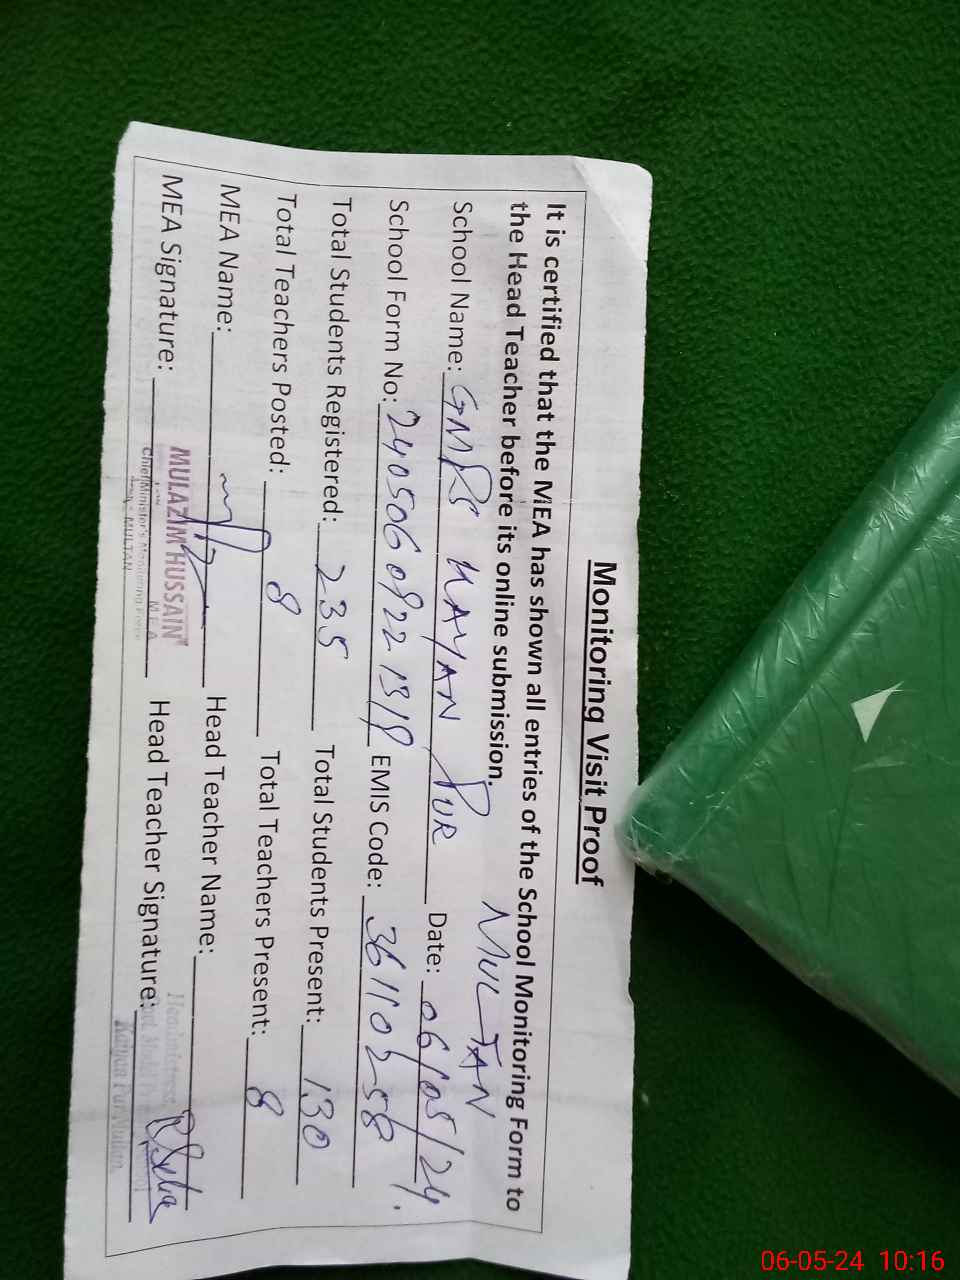 Monitoring Visit Proof
It is certified that the MEA has shown all entries of the School Monitoring Form to
the Head Teacher before its online submission.
MULTAN
School Name: GMPS KAYAN PUR Date: 06/05/24.
School Form No: 2405060922 1318 EMIS Code: 36110258
Total Students Registered: 235 Total Students Present: 130
Total Teachers Posted: 8 Total Teachers Present: 8
MEA Name: Head Teacher Name:
MEA Signature: Head Teacher Signature:
MULAZIM HUSSAIN
M.E.A
Chief Minister's Monitoring Force
MULTAN
Headmistress
Govt. Model
Pur Multan
06-05-24 10:16